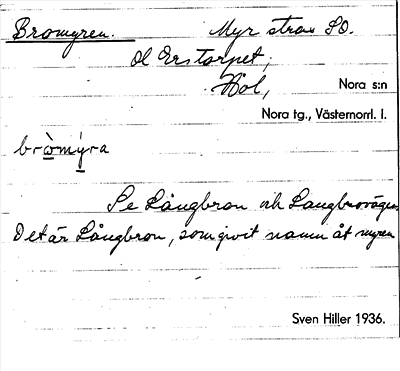 Bromyren. Myr strax SO.
Ol Erstorpet,
Hol, Nora s:n
Nora tg., Västernorrl. l.
bròmýra
Se Långbron och Langbrovägen.
Det är Långbron, som givit namn åt myren
Sven Hiller 1936.